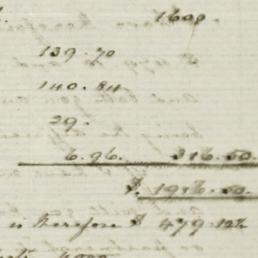 1600.
139.70
140.84
29.
6.96. 316.50.
$. 1916.50.
is therefore $ 479.12½